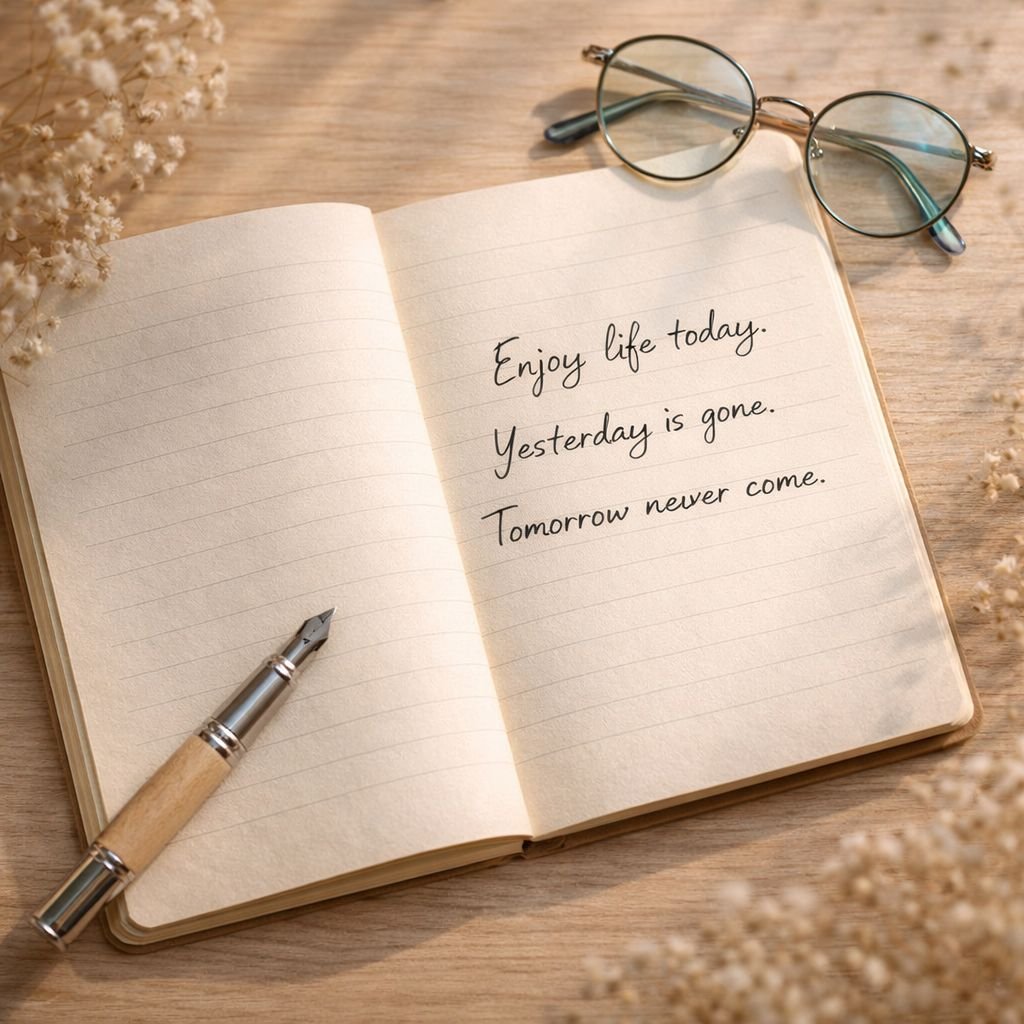 Enjoy life today.
Yesterday is gone.
Tomorrow never come.